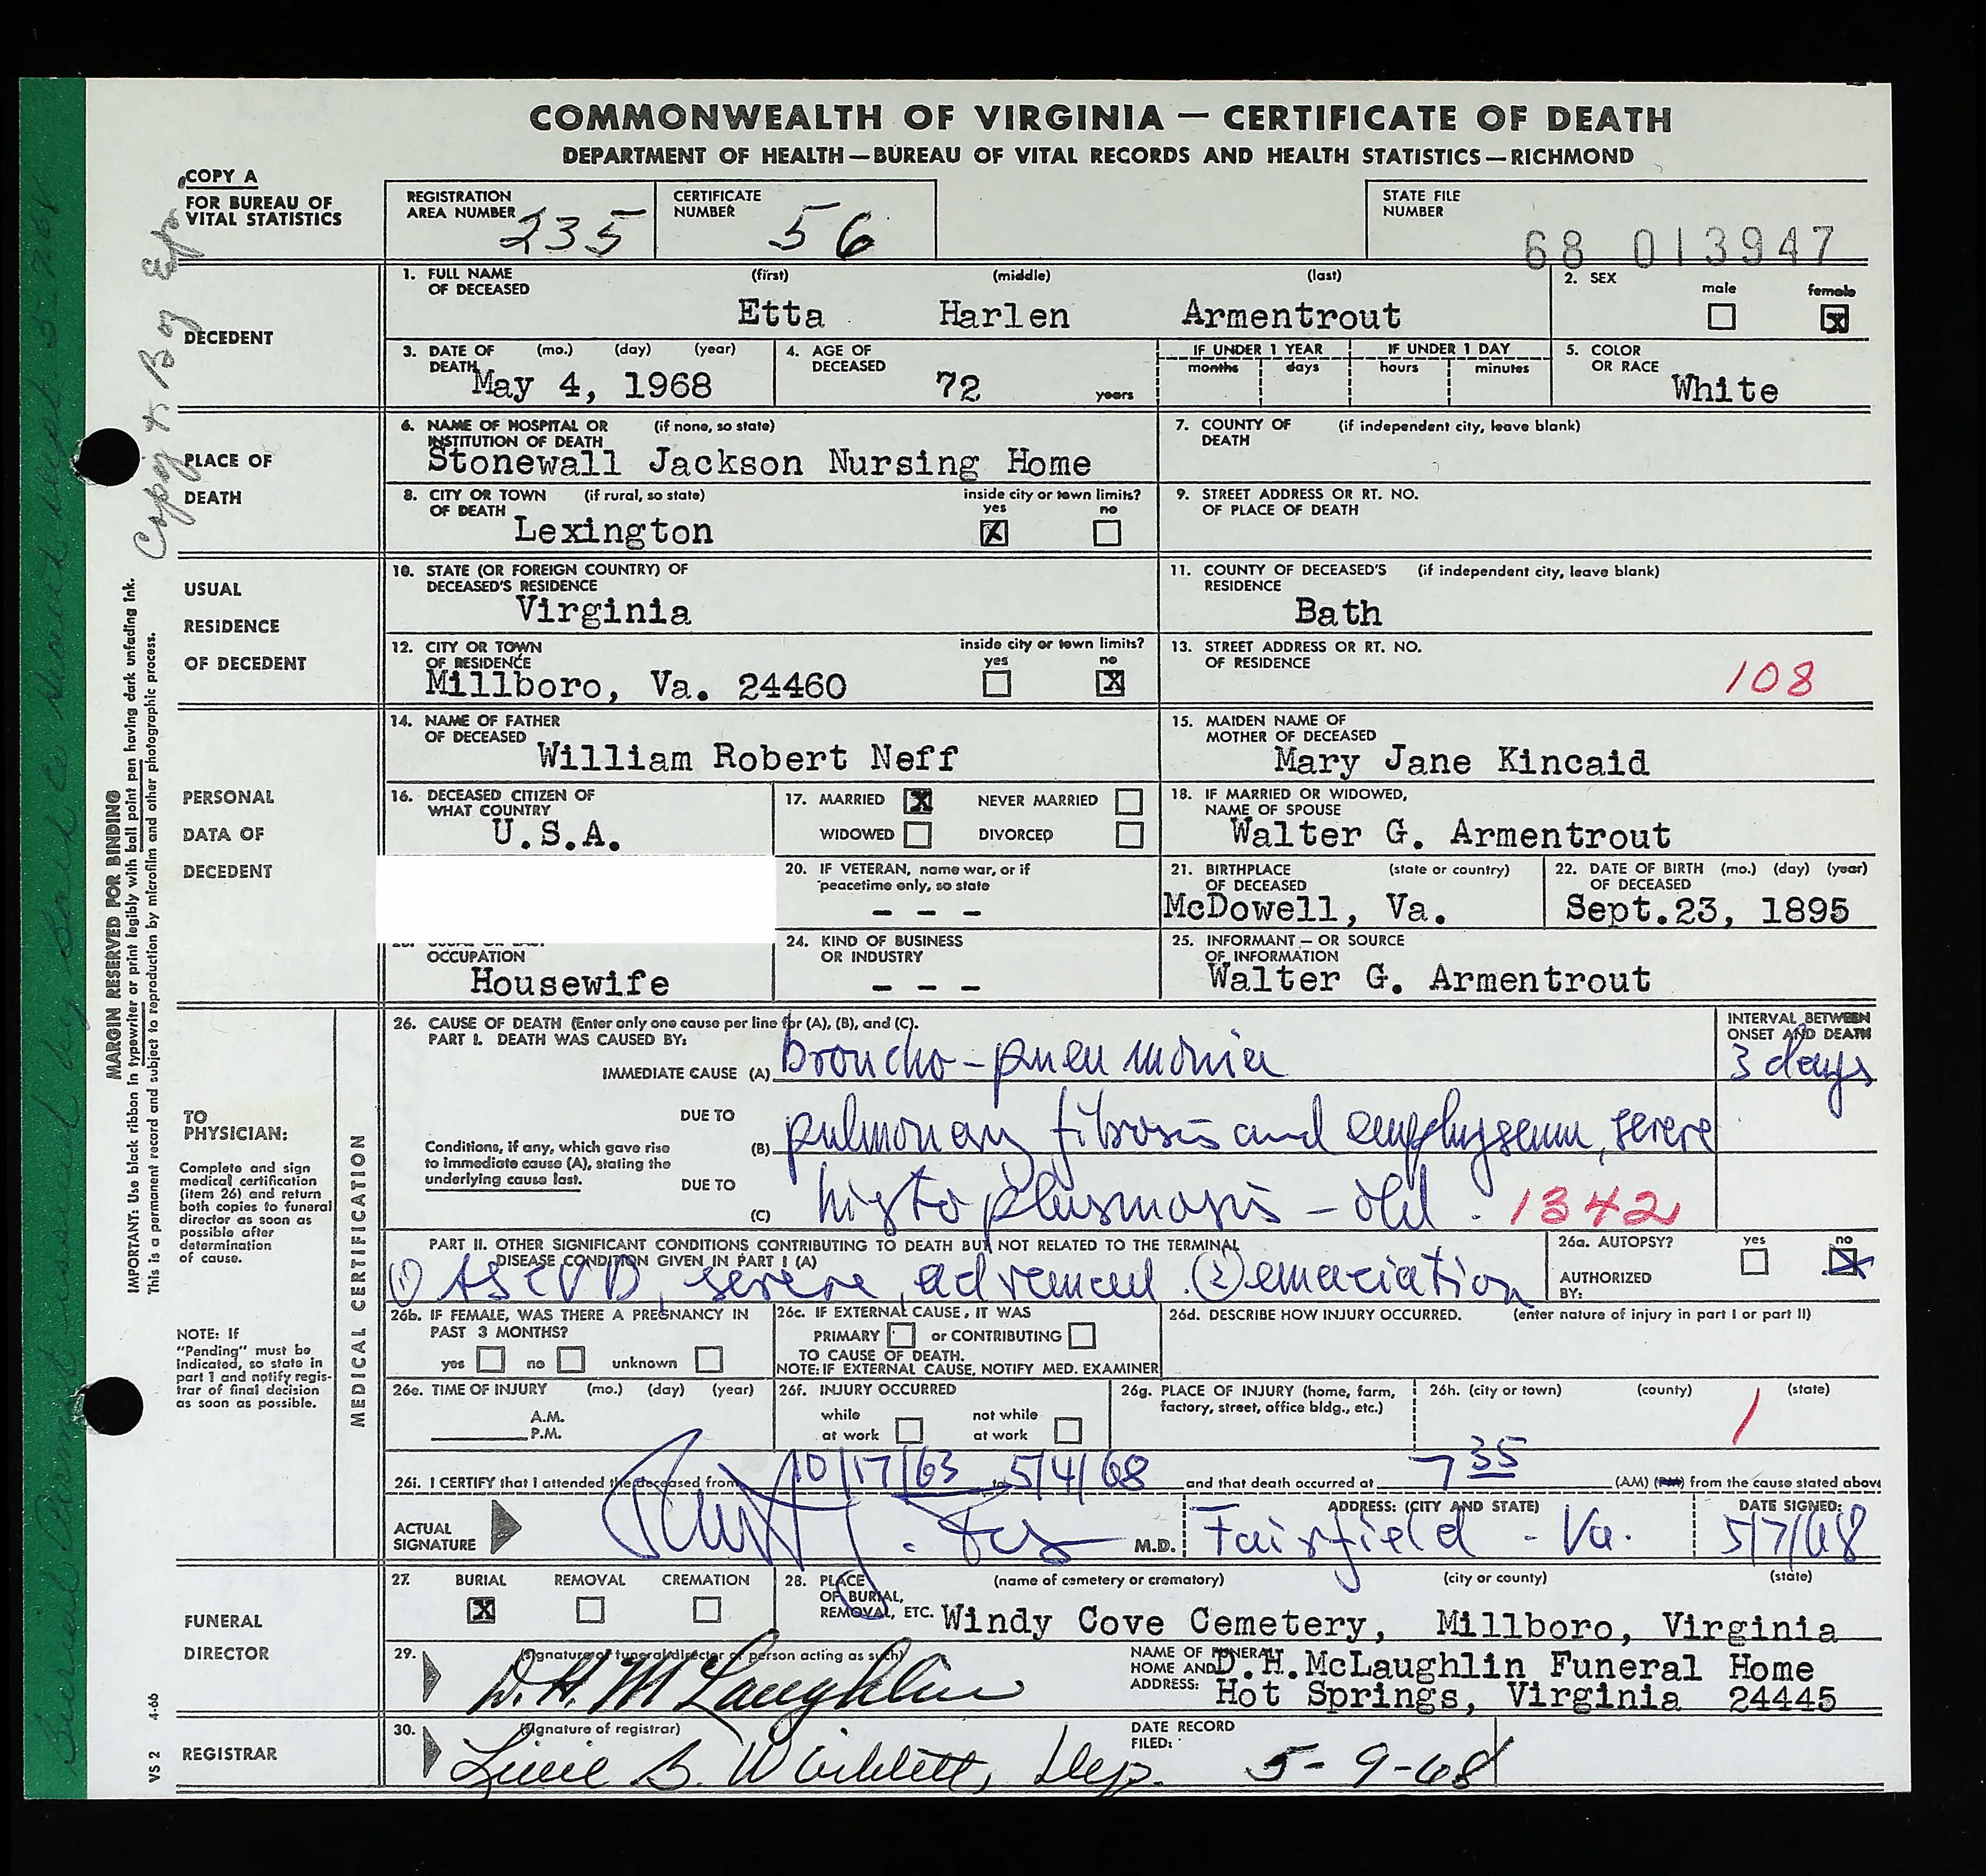 COMMONWEALTH OF VIRGINIA — CERTIFICATE OF DEATH
DEPARTMENT OF HEALTH—BUREAU OF VITAL RECORDS AND HEALTH STATISTICS—RICHMOND
COPY A
FOR BUREAU OF
VITAL STATISTICS
REGISTRATION
AREA NUMBER 235
CERTIFICATE
NUMBER 56
STATE FILE
NUMBER
68 013947
DECEDENT
1. FULL NAME OF DECEASED (first) (middle) (last)
Etta Harlen Armentrout
2. SEX
male female
X
3. DATE OF DEATH (mo.) (day) (year)
May 4, 1968
4. AGE OF DECEASED
72 years
IF UNDER 1 YEAR
months days
IF UNDER 1 DAY
hours minutes
5. COLOR OR RACE
White
PLACE OF
DEATH
6. NAME OF HOSPITAL OR INSTITUTION OF DEATH (if none, so state)
Stonewall Jackson Nursing Home
7. COUNTY OF DEATH (if independent city, leave blank)
8. CITY OR TOWN OF DEATH (if rural, so state)
Lexington
inside city or town limits?
yes no
X
9. STREET ADDRESS OR RT. NO. OF PLACE OF DEATH
USUAL
RESIDENCE
OF DECEDENT
10. STATE (OR FOREIGN COUNTRY) OF DECEASED'S RESIDENCE
Virginia
11. COUNTY OF DECEASED'S RESIDENCE (if independent city, leave blank)
Bath
12. CITY OR TOWN OF RESIDENCE
Millboro, Va. 24460
inside city or town limits?
yes no
X
13. STREET ADDRESS OR RT. NO. OF RESIDENCE
108
PERSONAL
DATA OF
DECEDENT
14. NAME OF FATHER OF DECEASED
William Robert Neff
15. MAIDEN NAME OF MOTHER OF DECEASED
Mary Jane Kincaid
16. DECEASED CITIZEN OF WHAT COUNTRY
U.S.A.
17. MARRIED X NEVER MARRIED
WIDOWED DIVORCED
18. IF MARRIED OR WIDOWED, NAME OF SPOUSE
Walter G. Armentrout
20. IF VETERAN, name war, or if peacetime only, so state
- - -
21. BIRTHPLACE OF DECEASED (state or country)
McDowell, Va.
22. DATE OF BIRTH OF DECEASED (mo.) (day) (year)
Sept.23, 1895
OCCUPATION
Housewife
24. KIND OF BUSINESS OR INDUSTRY
- - -
25. INFORMANT — OR SOURCE OF INFORMATION
Walter G. Armentrout
MARGIN RESERVED FOR BINDING
IMPORTANT: Use black ribbon in typewriter or print legibly with ball point pen having dark unfading ink.
This is a permanent record and subject to reproduction by microfilm and other photographic process.
TO
PHYSICIAN:
Complete and sign
medical certification
(item 26) and return
both copies to funeral
director as soon as
possible after
determination
of cause.
NOTE: If
"Pending" must be
indicated, so state in
part 1 and notify regis-
trar of final decision
as soon as possible.
MEDICAL CERTIFICATION
26. CAUSE OF DEATH (Enter only one cause per line for (A), (B), and (C).
PART I. DEATH WAS CAUSED BY:
INTERVAL BETWEEN
ONSET AND DEATH
IMMEDIATE CAUSE (A) broncho-pneumonia 3 days
DUE TO
Conditions, if any, which gave rise
to immediate cause (A), stating the
underlying cause last.
(B) pulmonary fibrosis and emphysema, severe
DUE TO
(C) histoplasmosis - old. 1342
PART II. OTHER SIGNIFICANT CONDITIONS CONTRIBUTING TO DEATH BUT NOT RELATED TO THE TERMINAL
DISEASE CONDITION GIVEN IN PART I (A)
(1) ASCVD, severe, advanced (2) emaciation
26a. AUTOPSY?
yes no
X
AUTHORIZED
BY:
26b. IF FEMALE, WAS THERE A PREGNANCY IN
PAST 3 MONTHS?
yes no unknown
26c. IF EXTERNAL CAUSE, IT WAS
PRIMARY or CONTRIBUTING
TO CAUSE OF DEATH.
NOTE: IF EXTERNAL CAUSE, NOTIFY MED. EXAMINER
26d. DESCRIBE HOW INJURY OCCURRED. (enter nature of injury in part I or part II)
26e. TIME OF INJURY (mo.) (day) (year)
A.M.
P.M.
26f. INJURY OCCURRED
while
at work
not while
at work
26g. PLACE OF INJURY (home, farm,
factory, street, office bldg., etc.)
26h. (city or town) (county) (state)
1
26i. I CERTIFY that I attended the deceased from 10/17/63 to 5/4/68 and that death occurred at 7 35 (AM) (PM) from the cause stated above
ACTUAL
SIGNATURE
M.D.
ADDRESS: (CITY AND STATE)
Fairfield - Va.
DATE SIGNED:
5/7/68
FUNERAL
DIRECTOR
27. BURIAL REMOVAL CREMATION
X
28. PLACE OF BURIAL, REMOVAL, ETC. (name of cemetery or crematory) (city or county) (state)
Windy Cove Cemetery, Millboro, Virginia
29. (signature of funeral director or person acting as such)
D. H. McLaughlin
NAME OF FUNERAL
HOME AND
ADDRESS:
D.H.McLaughlin Funeral Home
Hot Springs, Virginia 24445
REGISTRAR
30. (signature of registrar)
B. Dep.
DATE RECORD
FILED:
5-9-68
VS 2 4-66